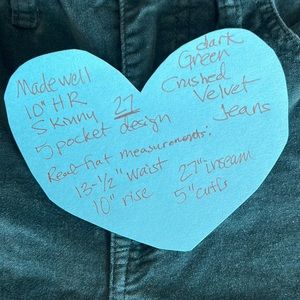 Madewell
10" HR
Skinny 27
5 pocket design
dark
Green
Crushed
Velvet
Jeans
Real flat measurements:
13-1/2" waist
10" rise
27" inseam
5" cuffs